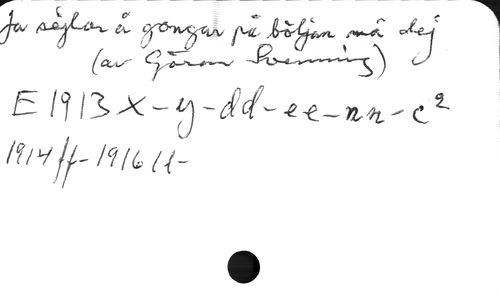 Ja séjlar å gongar på böljan må dej
(av Göran Svenning)
E 1913 x - y - dd - ee - nn - c²
1914 ff - 1916 ll -